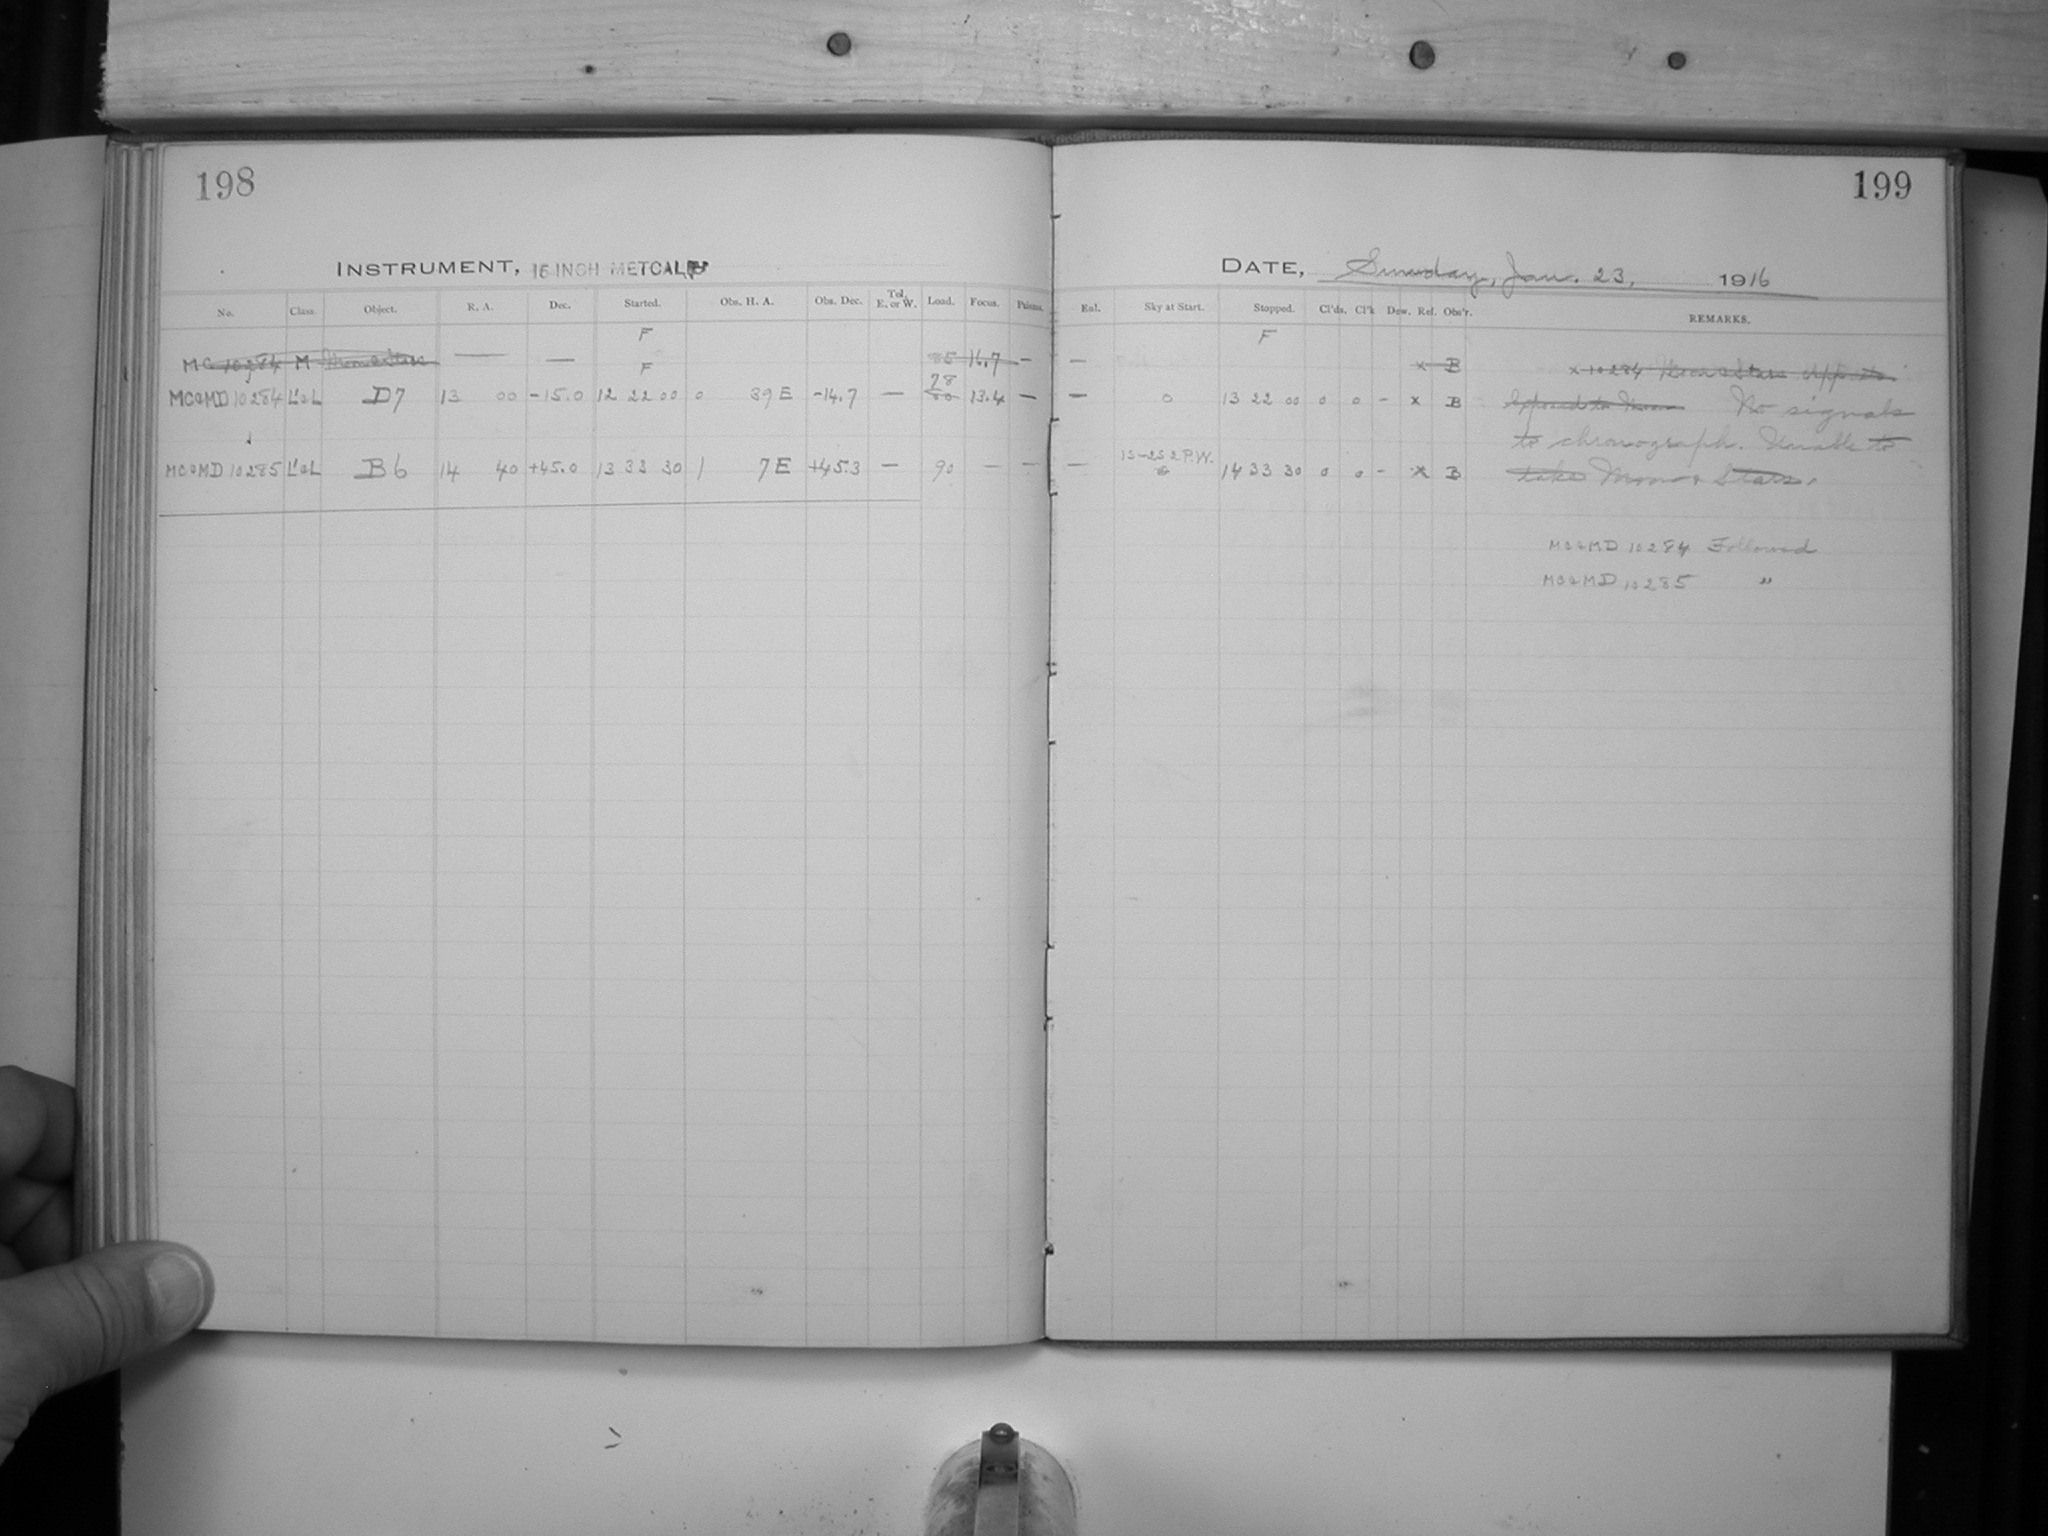 198
199
INSTRUMENT, 16 INCH METCALF
DATE, Sunday, Jan. 23, 1916
No. Class. Object. R. A. Dec. Started. Obs. H. A. Obs. Dec. Tel. E. or W. Load. Focus. Prisms. Enl. Sky at Start. Stopped. Cl'ds. Cl'k Dew. Rel. Obs'r. REMARKS.
F F
MC 10284 M Moon & Stars — — 85 16.7 — — x B x 10284 Moon & Stars app. to
F
78
MC&MD 10284 L'&L D7 13 00 -15.0 12 22 00 0 39 E -14.7 — 80 13.4 — — 0 13 22 00 0 0 - x B Exposed to Moon No signals
to chronograph. Unable to
13-25 2 P.W.
MC&MD 10285 L'&L B6 14 40 +45.0 13 33 30 1 7 E +45.3 — 90 — — — 14 33 30 0 0 - x B take Moon & Stars.
MC&MD 10284 Followed
MC&MD 10285 "